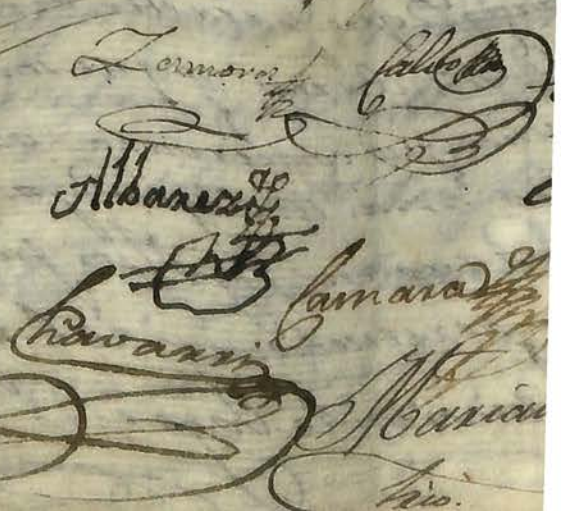 Zamora Calbo
Albarez
Camara
Chavarri
Marian